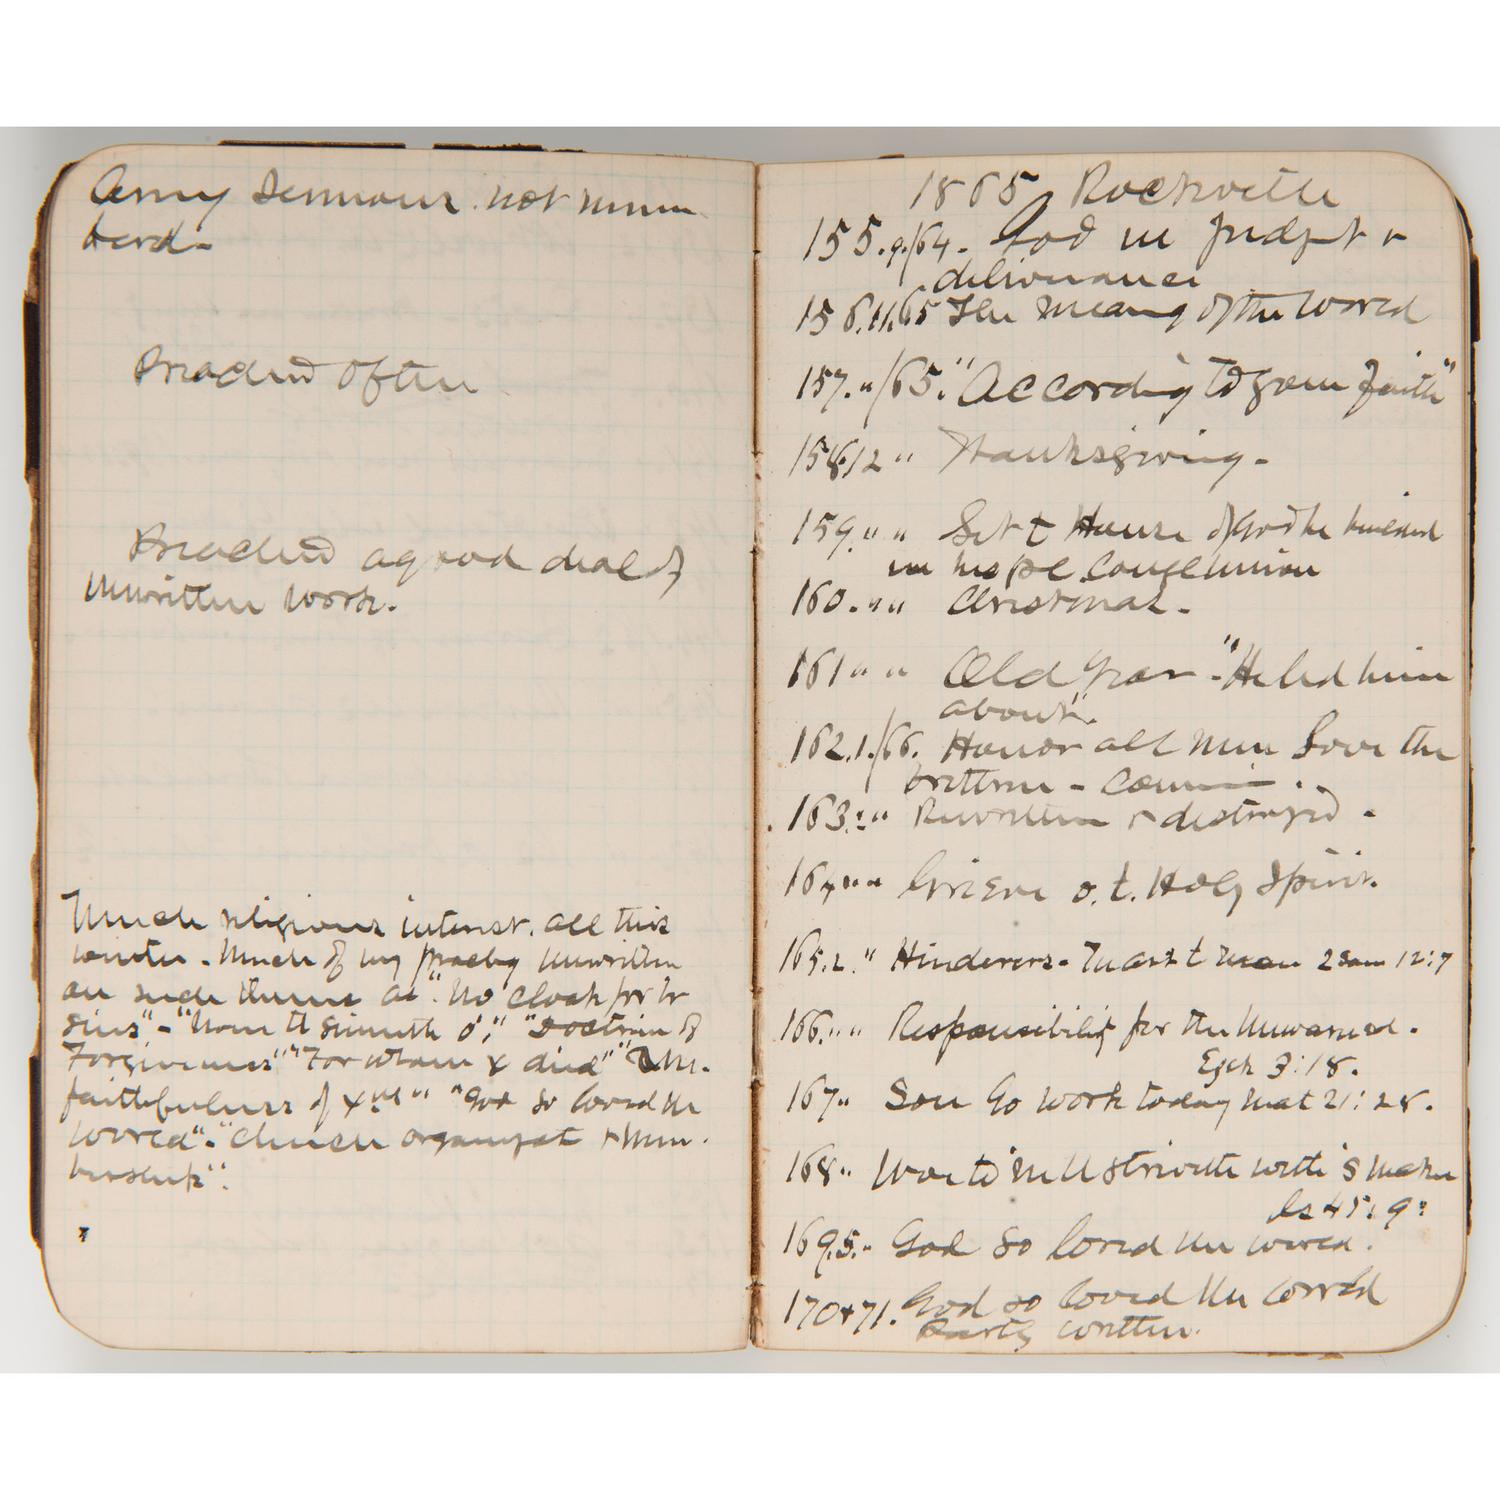 Army Sermons not num
bered.
Preached often
Preached a good deal of
unwritten work.
Much religious interest. all this
winter. Much of my preachg unwritten
on such themes as "No cloak for hr
sins" - "Now tt sinneth o," "Doctrine of
Forgiveness" "For whom x died" "The
faithfulness of xns" "God so loved the
world" - "Church organizat & Mem-
bership".
1865 Rockville
155. 9./64. God in Judgt &
deliverance
156. 11./65 The meang of the word
157. "/65. "According to your faith"
158. 12 " Thanksgiving.
159. " " Set t House of God he builded
in his pl. Congl union
160. " " Christmas.
161 " " Old Year - "He led him
about".
162. 1./66. Honor all men Love the
brethren -
163. " " Rewritten & destroyed.
164 " " Grieve o. t. Holy Spirit.
165. 2. " Hinderers. Thou art t man 2 Sam 12:7
166. " " Responsibility for the Unwarned.
Ezek 3:18.
167 " Son Go work today Mat 21:28.
168 " Woe to m tt striveth with 's Maker
Is 45:9.
169. 5. " God so loved the world.
170 & 71. God so loved the world
Partly written.